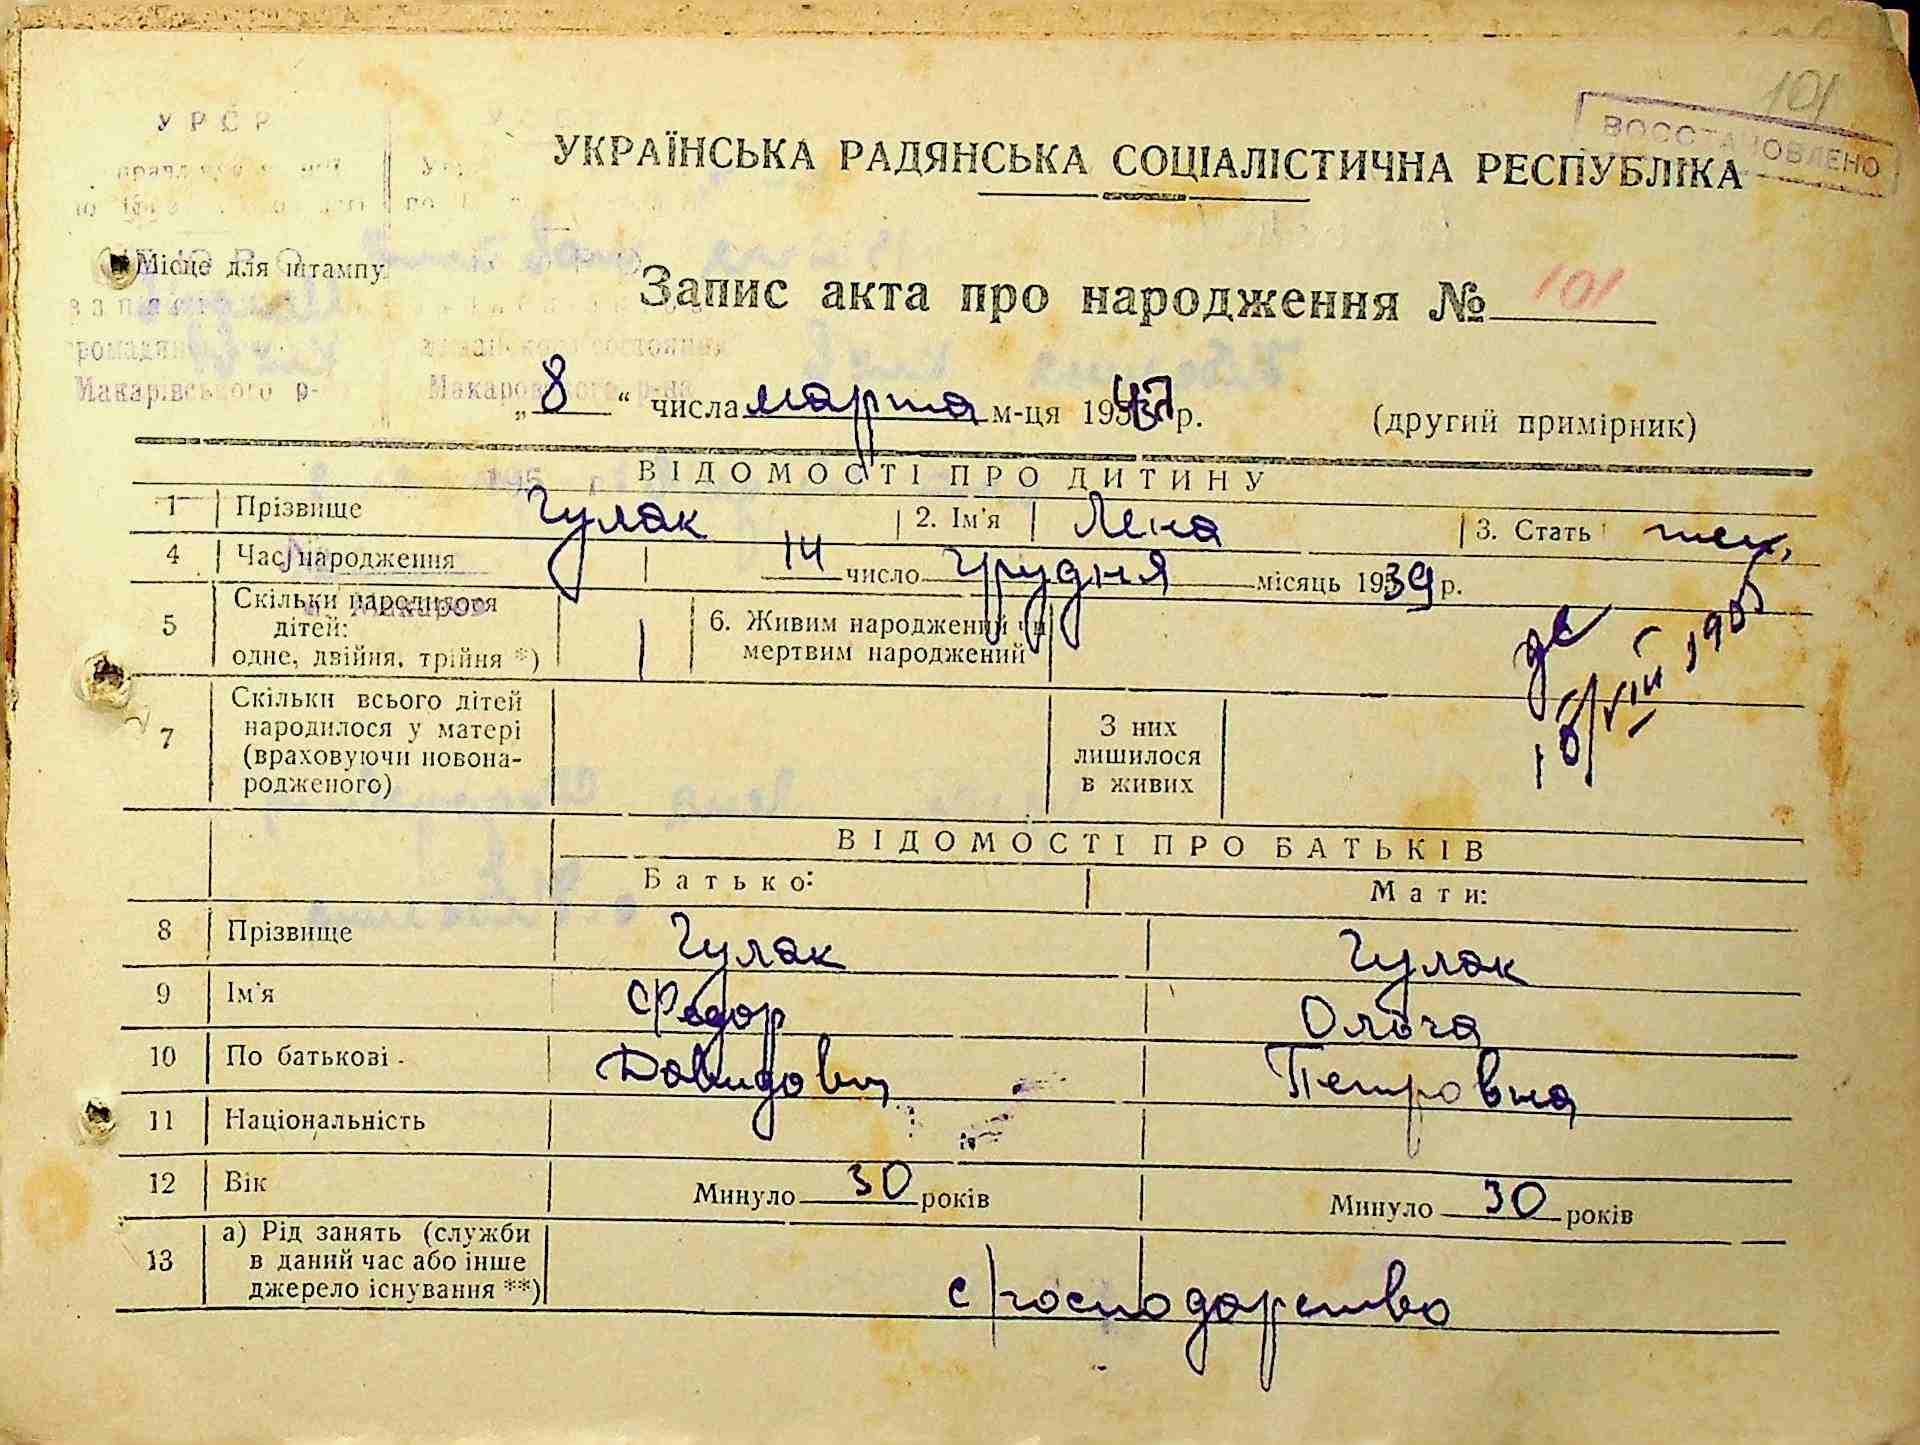 101
ВОССТАНОВЛЕНО
УРСР
УКРАЇНСЬКА РАДЯНСЬКА СОЦІАЛІСТИЧНА РЕСПУБЛІКА
Місце для штампу
Запис акта про народження № 101
Макарівського р-
„8“ числа марта м-ця 1947 р. (другий примірник)
ВІДОМОСТІ ПРО ДИТИНУ
1 Прізвище Гулак 2. Ім'я Лена 3. Стать жен.
4 Час народження 14 число грудня місяць 1939 р.
5 Скільки народилося
дітей:
одне, двійня, трійня *) 1
6. Живим народжений чи
мертвим народжений
7 Скільки всього дітей
народилося у матері
(враховуючи новона-
родженого)
З них
лишилося
в живих
ВІДОМОСТІ ПРО БАТЬКІВ
Батько: Мати:
8 Прізвище Гулак Гулак
9 Ім'я Федор Ольга
10 По батькові Давидович Петровна
11 Національність
12 Вік Минуло 30 років Минуло 30 років
13 а) Рід занять (служби
в даний час або інше
джерело існування **)
с/господарство